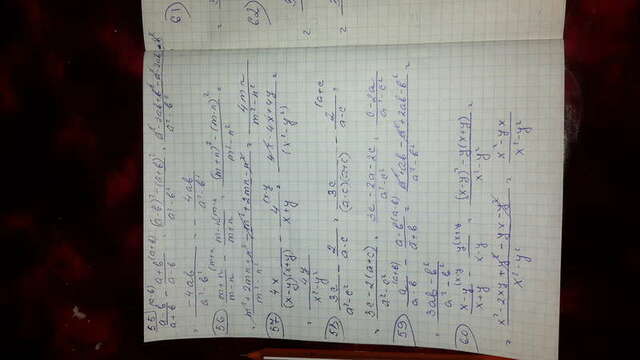 55) a-b/a+b - a+b/a-b = (a-b)²-(a+b)²/a²-b² = a²-2ab+b²-a²-2ab-b²/a²-b²
= -4ab/a²-b² = -4ab/a²-b²
56) m+n/m-n - m-n/m+n = (m+n)²-(m-n)²/m²-n²
= m²+2mn+n²-m²+2mn-n²/m²-n² = 4mn/m²-n²
57) 4x/(x-y)(x+y) - 4/x+y = 4x-4x+4y/(x²-y²) =
4y/x²-y²
58) 3c/a²-c² - 2/a-c = 3c/(a-c)(a+c) - 2/a-c
3c-2(a+c)/a²-c² = 3c-2a-2c/a²-c² = c-2a/a²-c²
59) a/a-b - a-b/a+b = a²+ab-a²+2ab-b²/a²-b² =
3ab-b²/a²-b²
60) x-y/x+y - y/x-y = (x-y)²-y(x+y)/x²-y²
= x²-2xy+y²-yx-y²/x²-y² =
61)
=
62)
=